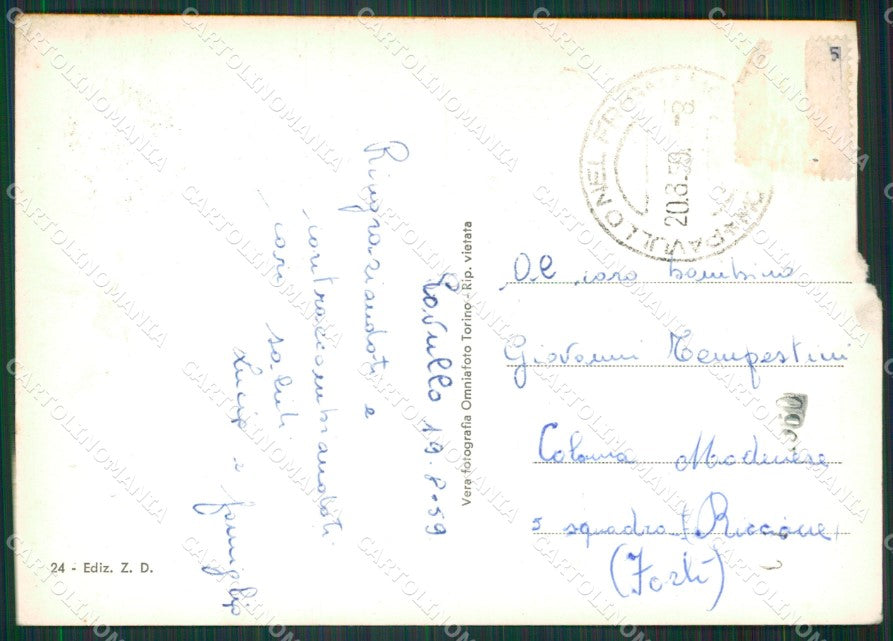 Pavullo 19.8.59
Ringraziandoti e
contraccambiandoti
cari saluti
Lucia e famiglia
Vera fotografia Omniafoto Torino - Rip. vietata
24 - Ediz. Z. D.
PAVULLO NEL
20.8.59. - 8
5
Al caro bambino
Giovanni Tempestini
Colonia Modenese
5 squadra Riccione
(Forlì)
CARTOLINOMANIA